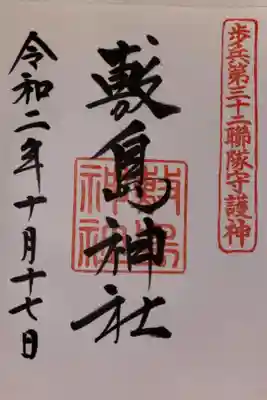 歩兵第三十二聯隊守護神
敷島神社
敷島神社
令和二年十月十七日